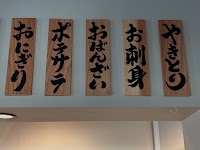 やきとり
お刺身
おばんざい
ポテサラ
おにぎり